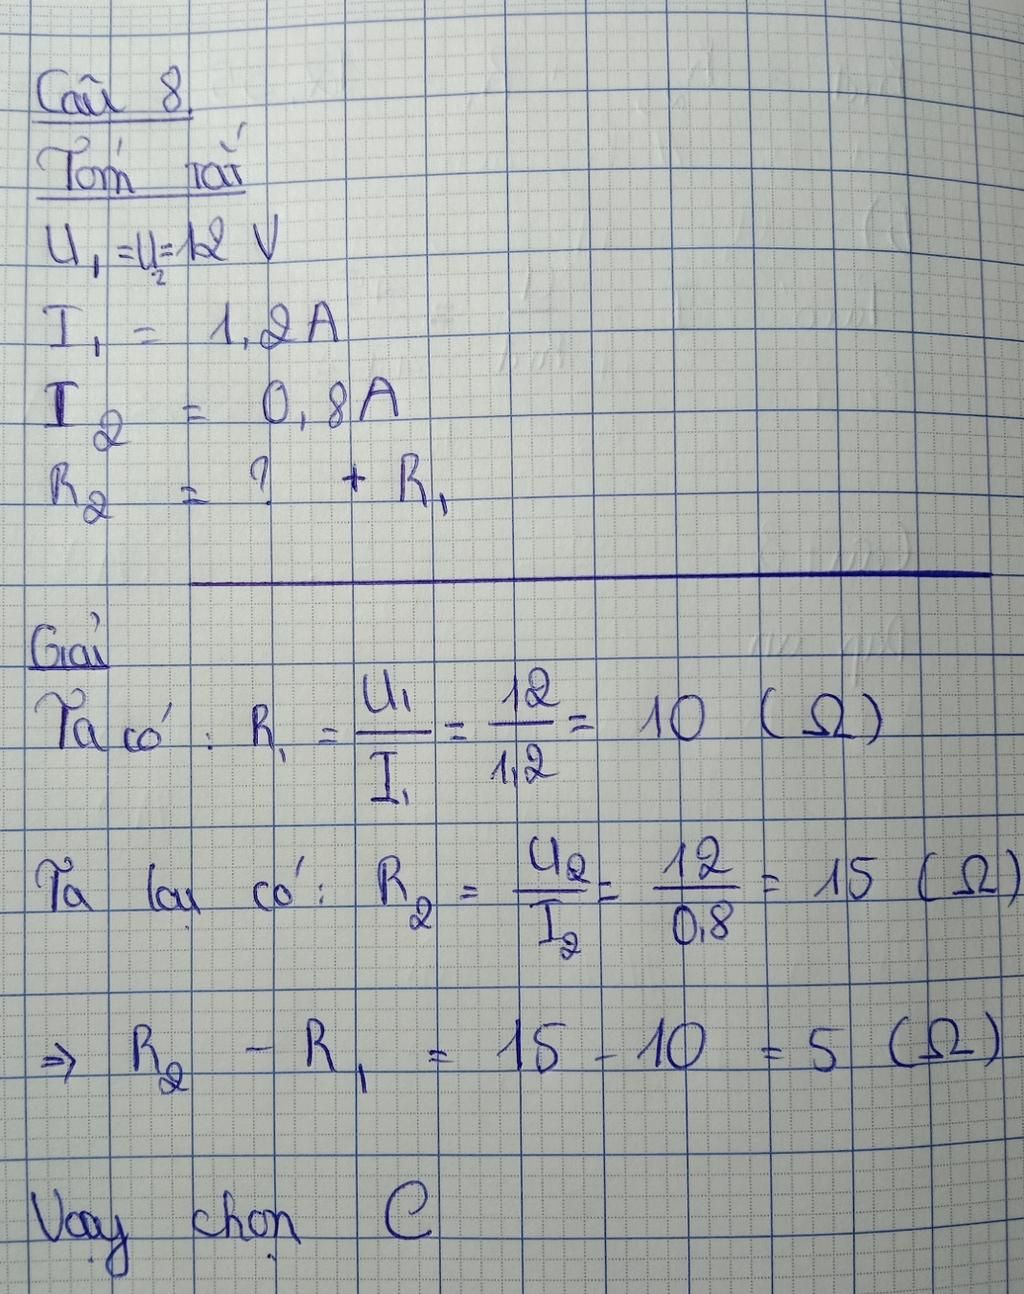 Câu 8
Tóm tắt
U₁ = U₂ = 12 V
I₁ = 1,2A
I₂ = 0,8A
R₂ = ? + R₁
Giải
Ta có : R₁ = U₁/I₁ = 12/1,2 = 10 (Ω)
Ta lại có : R₂ = U₂/I₂ = 12/0,8 = 15 (Ω)
⇒ R₂ - R₁ = 15 - 10 = 5 (Ω)
Vậy chọn C